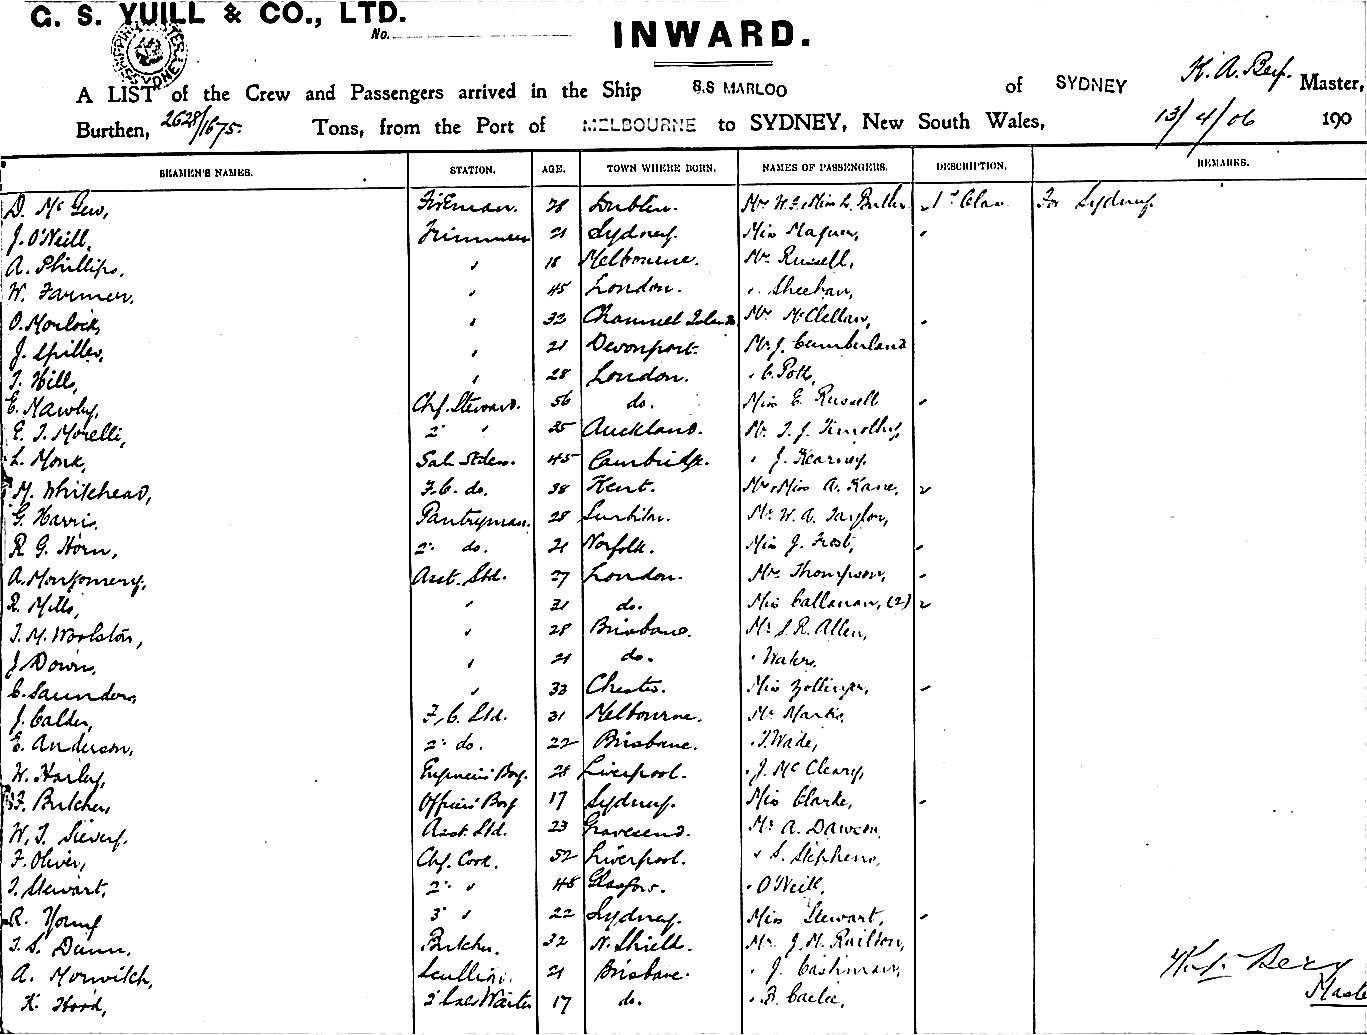 G. S. YUILL & CO., LTD.
No.
INWARD.
A LIST of the Crew and Passengers arrived in the Ship S.S MARLOO of SYDNEY Master,
Burthen, 2628/1675 Tons, from the Port of MELBOURNE to SYDNEY, New South Wales, 13/4/06 190
SEAMEN'S NAMES. STATION. AGE. TOWN WHERE BORN. NAMES OF PASSENGERS. DESCRIPTION. REMARKS.
D. Fireman. 28 Dublin. 1st Clas For Sydney.
J. O'Neill, Trimmer 21 Sydney. Miss Maguire,
A. Phillips, " 18 Melbourne. Mr. Russell,
W. Farmer, " 45 London. " Sheehan,
O. Morlock, " 33 Channel Islands Mrs McClellan,
J. Spiller, " 21 Devonport. Mr. J. Cumberland
T. Hill, " 28 London. " C. Pott,
E. Mawby, Chf. Steward. 56 do. Miss E. Russell
E. T. Morelli, 2d " 25 Auckland. Mr. T. J. Timothy,
L. Monk, 45 Cambridge. " J. Kearney.
M. Whitehead, F.C. do. 38 Kent. Mrs, Miss A. Kane,
G. Harris. Pantryman. 28 Surbiton. Mr. W. A. Taylor,
R. G. Horn, 2d do. 21 Norfolk. Miss J. Frost,
A. Montgomery, Asst. Std. 27 London. Mrs Thompson,
R. Mills, " 21 do. Miss Callanan, (2)
T. M. Woolston, " 28 Brisbane. Mr. S. R. Allen,
J. Down, " 21 do. " Waters,
C. Saunders, " 33 Chester. Miss Zollinger,
J. Calder, F.C. Std. 31 Melbourne. Mr. Martin,
E. Anderson, 2d do. 22 Brisbane. " T. Wade,
W. Harley, Engineers Boy. 28 Liverpool. " J. McCleary,
F. Butcher, Officers Boy 17 Sydney. Miss Clarke,
W. T. Asst. Std. 23 Gravesend. Mr. A. Dawson,
F. Oliver, Chf. Cook. 52 Liverpool. " S. Stephens,
T. Stewart, 2d " 48 Glasgow. " O'Neill,
R. Young 3d " 22 Sydney. Miss Stewart,
T. S. Dunn. Butcher. 32 N. Shield. Mr. J. M. Railton,
A. Morwitch, Scullion. 21 Brisbane. " J. Cashman,
K. Hood, 17 do.
Master